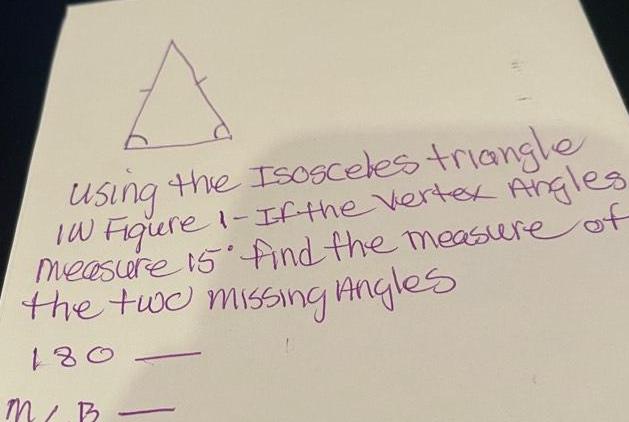 using the Isosceles triangle
IW Figure 1-If the Vertex Angles
measure 15° find the measure of
the two missing Angles
180 —
M∠B —